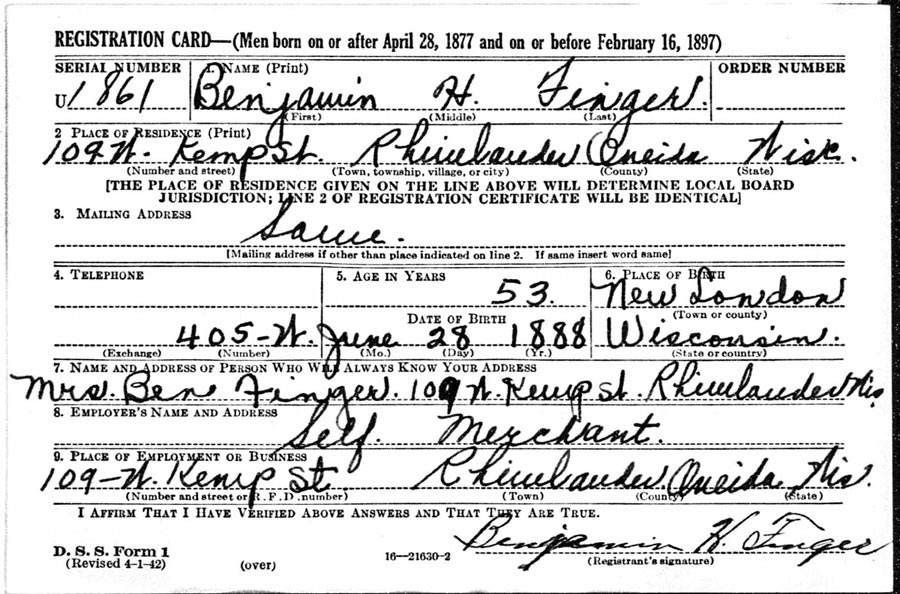 REGISTRATION CARD—(Men born on or after April 28, 1877 and on or before February 16, 1897)
SERIAL NUMBER 1. NAME (Print) ORDER NUMBER
U 1861 Benjamin H. Finger.
(First) (Middle) (Last)
2 PLACE OF RESIDENCE (Print)
109 W. Kemp St. Rhinelander Oneida Wisc.
(Number and street) (Town, township, village, or city) (County) (State)
[THE PLACE OF RESIDENCE GIVEN ON THE LINE ABOVE WILL DETERMINE LOCAL BOARD
JURISDICTION; LINE 2 OF REGISTRATION CERTIFICATE WILL BE IDENTICAL]
3. MAILING ADDRESS
Same.
[Mailing address if other than place indicated on line 2. If same insert word same]
4. TELEPHONE 5. AGE IN YEARS 6. PLACE OF BIRTH
53. New London
DATE OF BIRTH (Town or county)
405-W. June 28 1888 Wisconsin.
(Exchange) (Number) (Mo.) (Day) (Yr.) (State or country)
7. NAME AND ADDRESS OF PERSON WHO WILL ALWAYS KNOW YOUR ADDRESS
Mrs. Ben Finger. 109 W. Kemp St. Rhinelander Wis.
8. EMPLOYER'S NAME AND ADDRESS
Self. Merchant.
9. PLACE OF EMPLOYMENT OR BUSINESS
109-W. Kemp St. Rhinelander Oneida Wis.
(Number and street or R. F. D. number) (Town) (County) (State)
I AFFIRM THAT I HAVE VERIFIED ABOVE ANSWERS AND THAT THEY ARE TRUE.
Benjamin H. Finger
D. S. S. Form 1
(Revised 4-1-42) (over) 16—21630-2 (Registrant's signature)